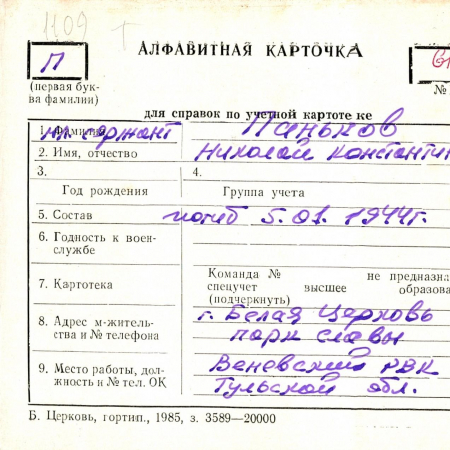 1109
АЛФАВИТНАЯ КАРТОЧКА
П
(первая бук-
ва фамилии)
№
для справок по учетной картоте ке
1. Фамилия мл. сержант Паньков
2. Имя, отчество Николай Константин
3. 4.
Год рождения Группа учета
5. Состав погиб 5.01.1944г.
6. Годность к воен-
службе
7. Картотека
Команда № не предназна
спецучет высшее образова
(подчеркнуть)
8. Адрес м-житель-
ства и № телефона
г. Белая Церковь
парк славы
9. Место работы, дол-
жность и № тел. ОК
Веневский РВК
Тульской обл.
Б. Церковь, гортип., 1985, з. 3589—20000